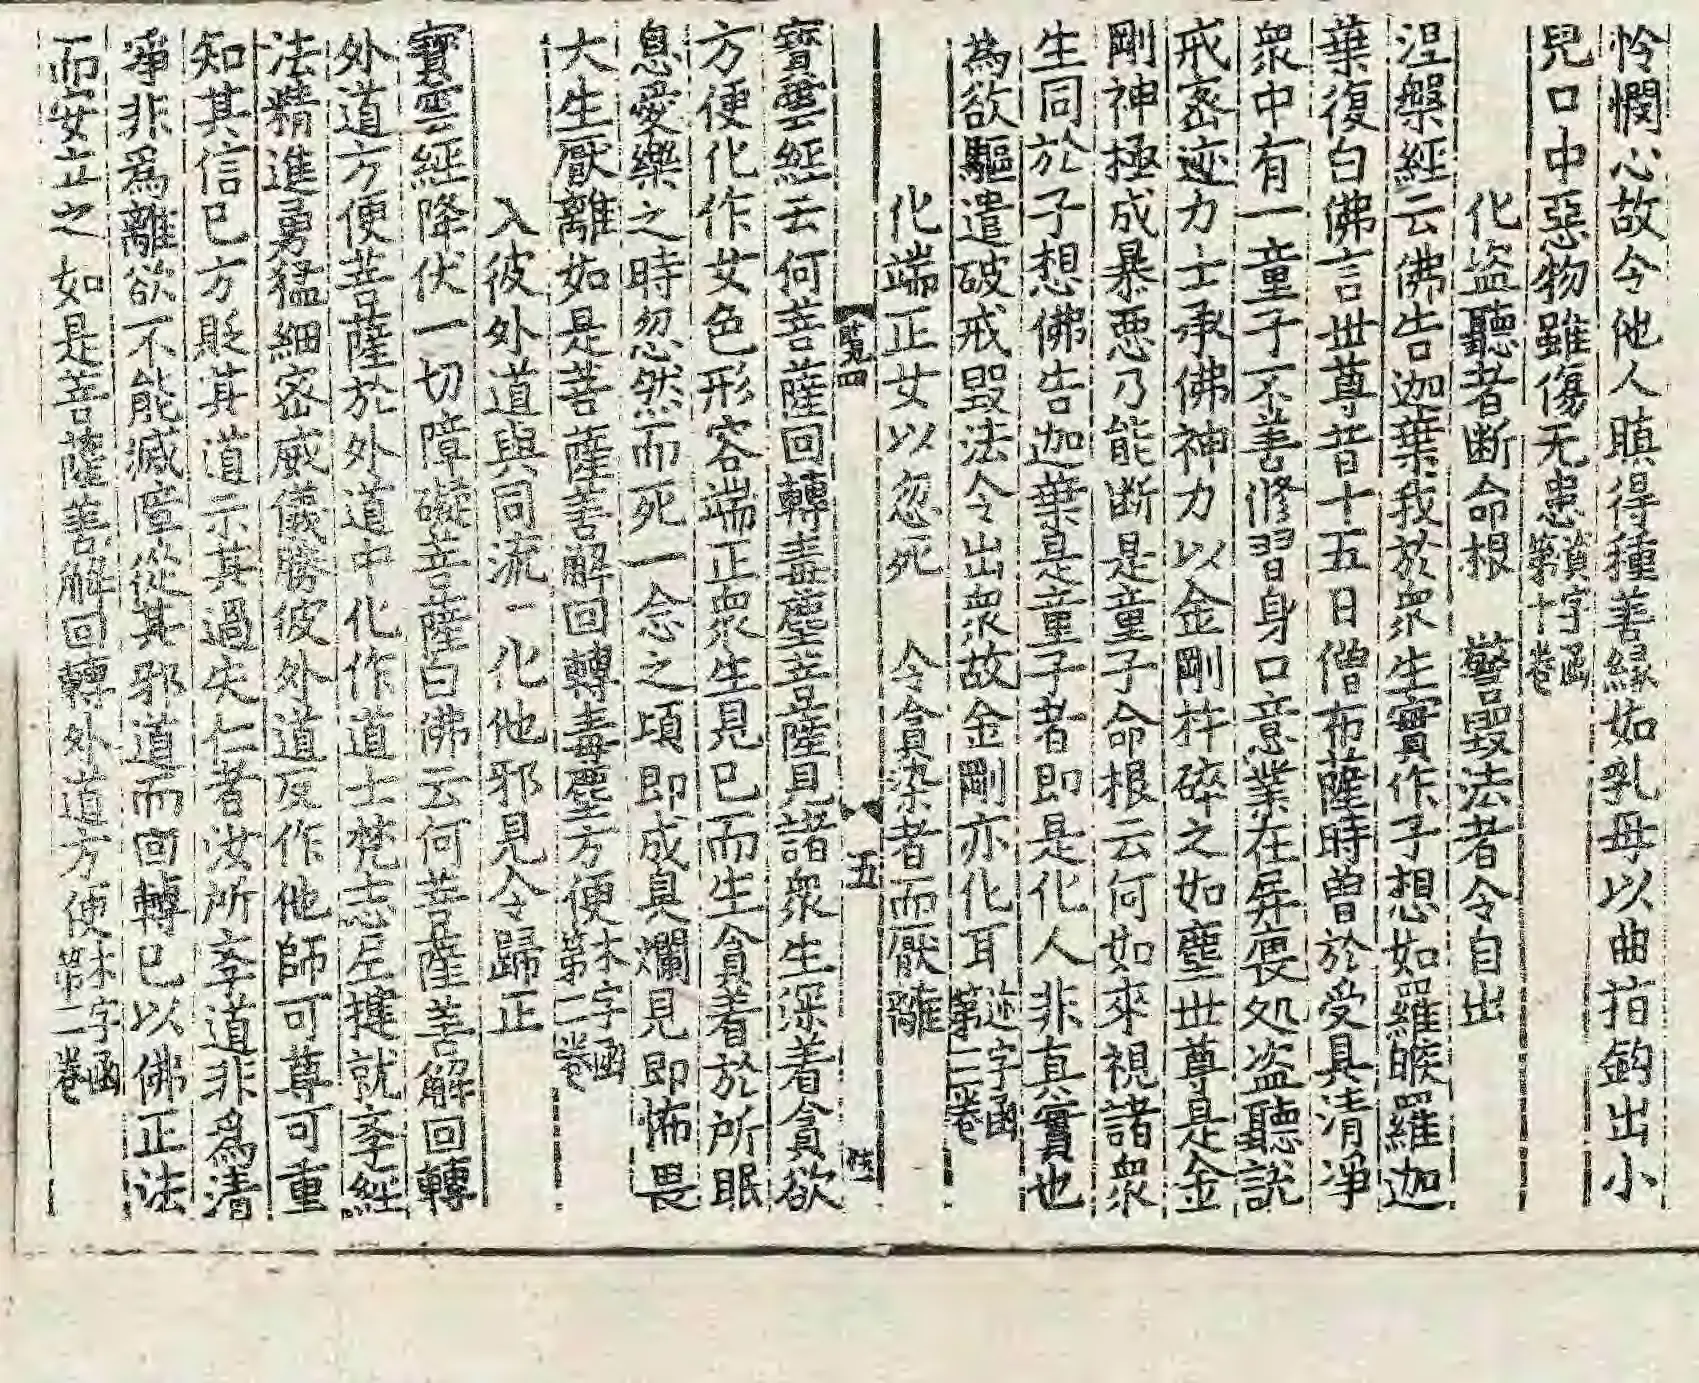 怜憫心故令他人瞋得種善縁如乳母以曲指鈎出小
兒口中惡物雖傷无患滇字函第十卷
化盗聽者断命根　警毀法者令自出
涅槃經云佛告迦葉我於衆生實作子想如羅睺羅迦
葉復白佛言世尊昔十五日僧布薩時曾於受具清淨
衆中有一童子不善修習身口意業在屏㾗処盗聽説
戒宻迹力士承佛神力以金剛杵碎之如塵世尊是金
剛神極成暴惡乃能断是童子命根云何如來視諸衆
生同於子想佛告迦葉是童子者即是化人非真實也
為欲驅遣破戒毀法令出衆故金剛亦化耳迹字函第二卷
化端正女以忽死　令貪染者而厭離
覧四　五
寶雲經云何菩薩回轉毒塵菩薩見諸衆生深着貪欲
方便化作女色形容端正衆生見已而生貪着於所眠
息愛樂之時忽然而死一念之頃即成臭爛見即怖畏
大生厭離如是菩薩善解回轉毒塵方便木字函第二卷
入彼外道與同流　化他邪見令歸正
寶雲經降伏一切障礙菩薩白佛云何菩薩善解回轉
外道方便菩薩於外道中化作道士梵志尼揵就斈經
法精進勇猛細宻威儀勝彼外道反作他師可尊可重
知其信已方貶其道示其過失仁者汝所斈道非為清
淨非為離欲不能滅塵從其邪道而回轉已以佛正法
而安立之如是菩薩善解回轉外道方便木字函第二卷